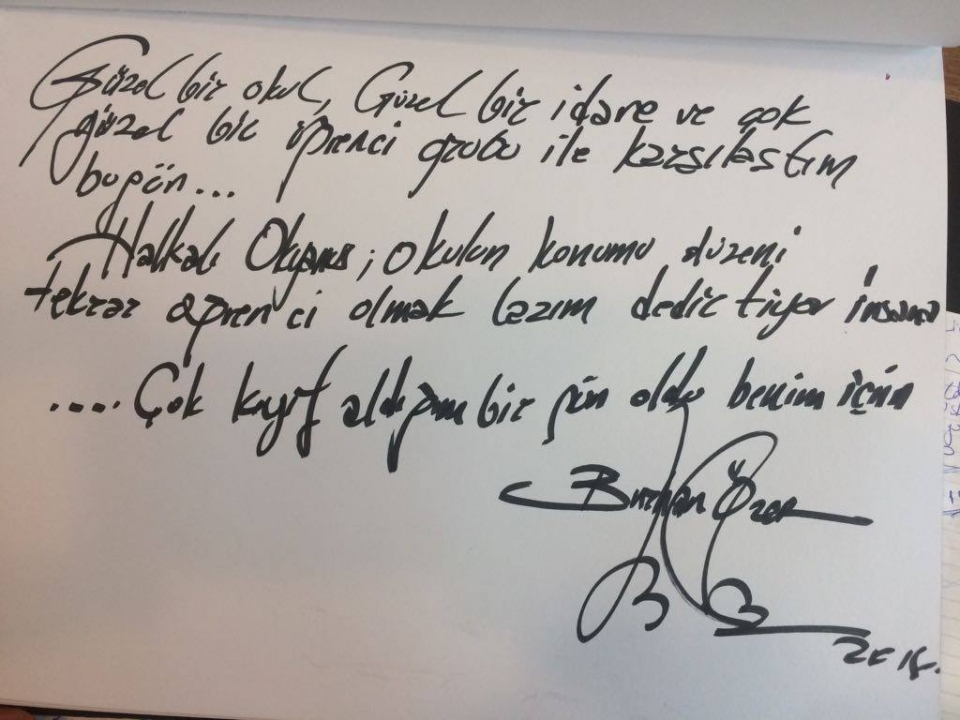 Güzel bir okul, Güzel bir idare ve çok
güzel bir öğrenci grubu ile karşılaştım
bugün...
Halkalı Okyanus; okulun konumu düzeni
tekrar öğrenci olmak lazım dedirtiyor insana
.... Çok keyif aldığım bir gün oldu benim için
Burhan Özer